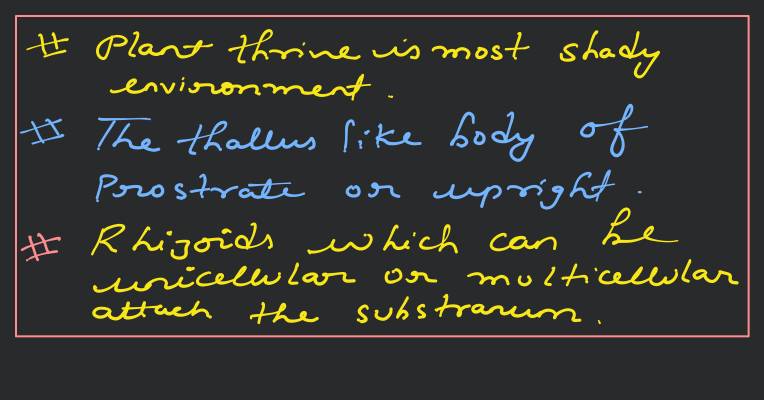 # Plant thrine is most shady
environment.
# The thallus like body of
Prostrate or upright.
# Rhizoids which can be
unicellular or multicellular
attach the substranum.